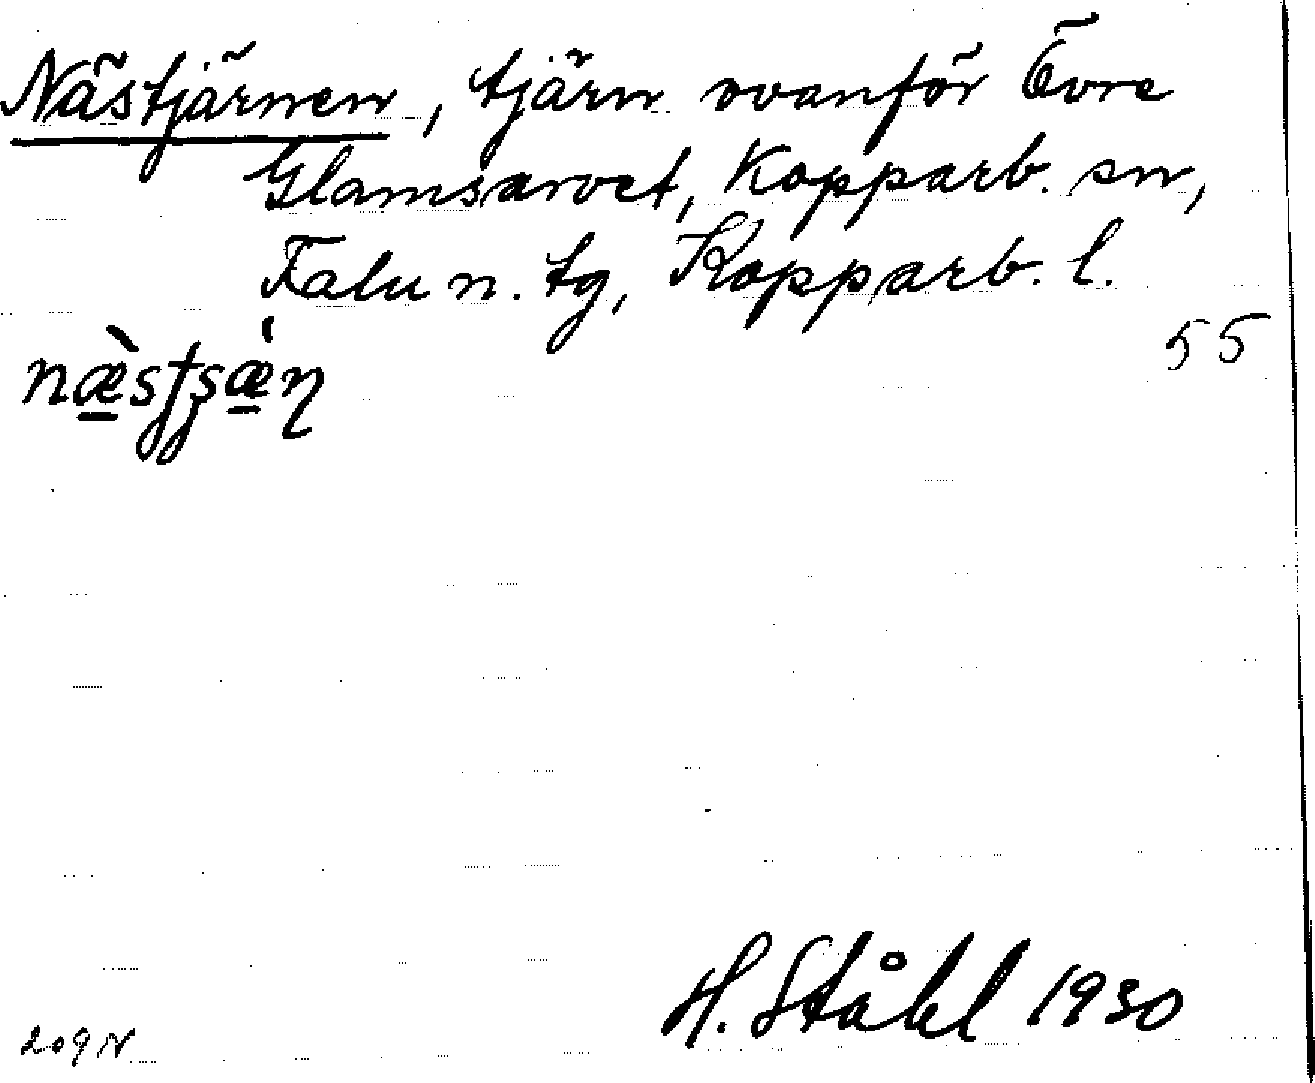 Nästjärnen, tjärn ovanför Övre
Glamsarvet, Kopparb. sn,
Falu n. tg, Kopparb. l.
55
H. Ståhl 1930
209 N